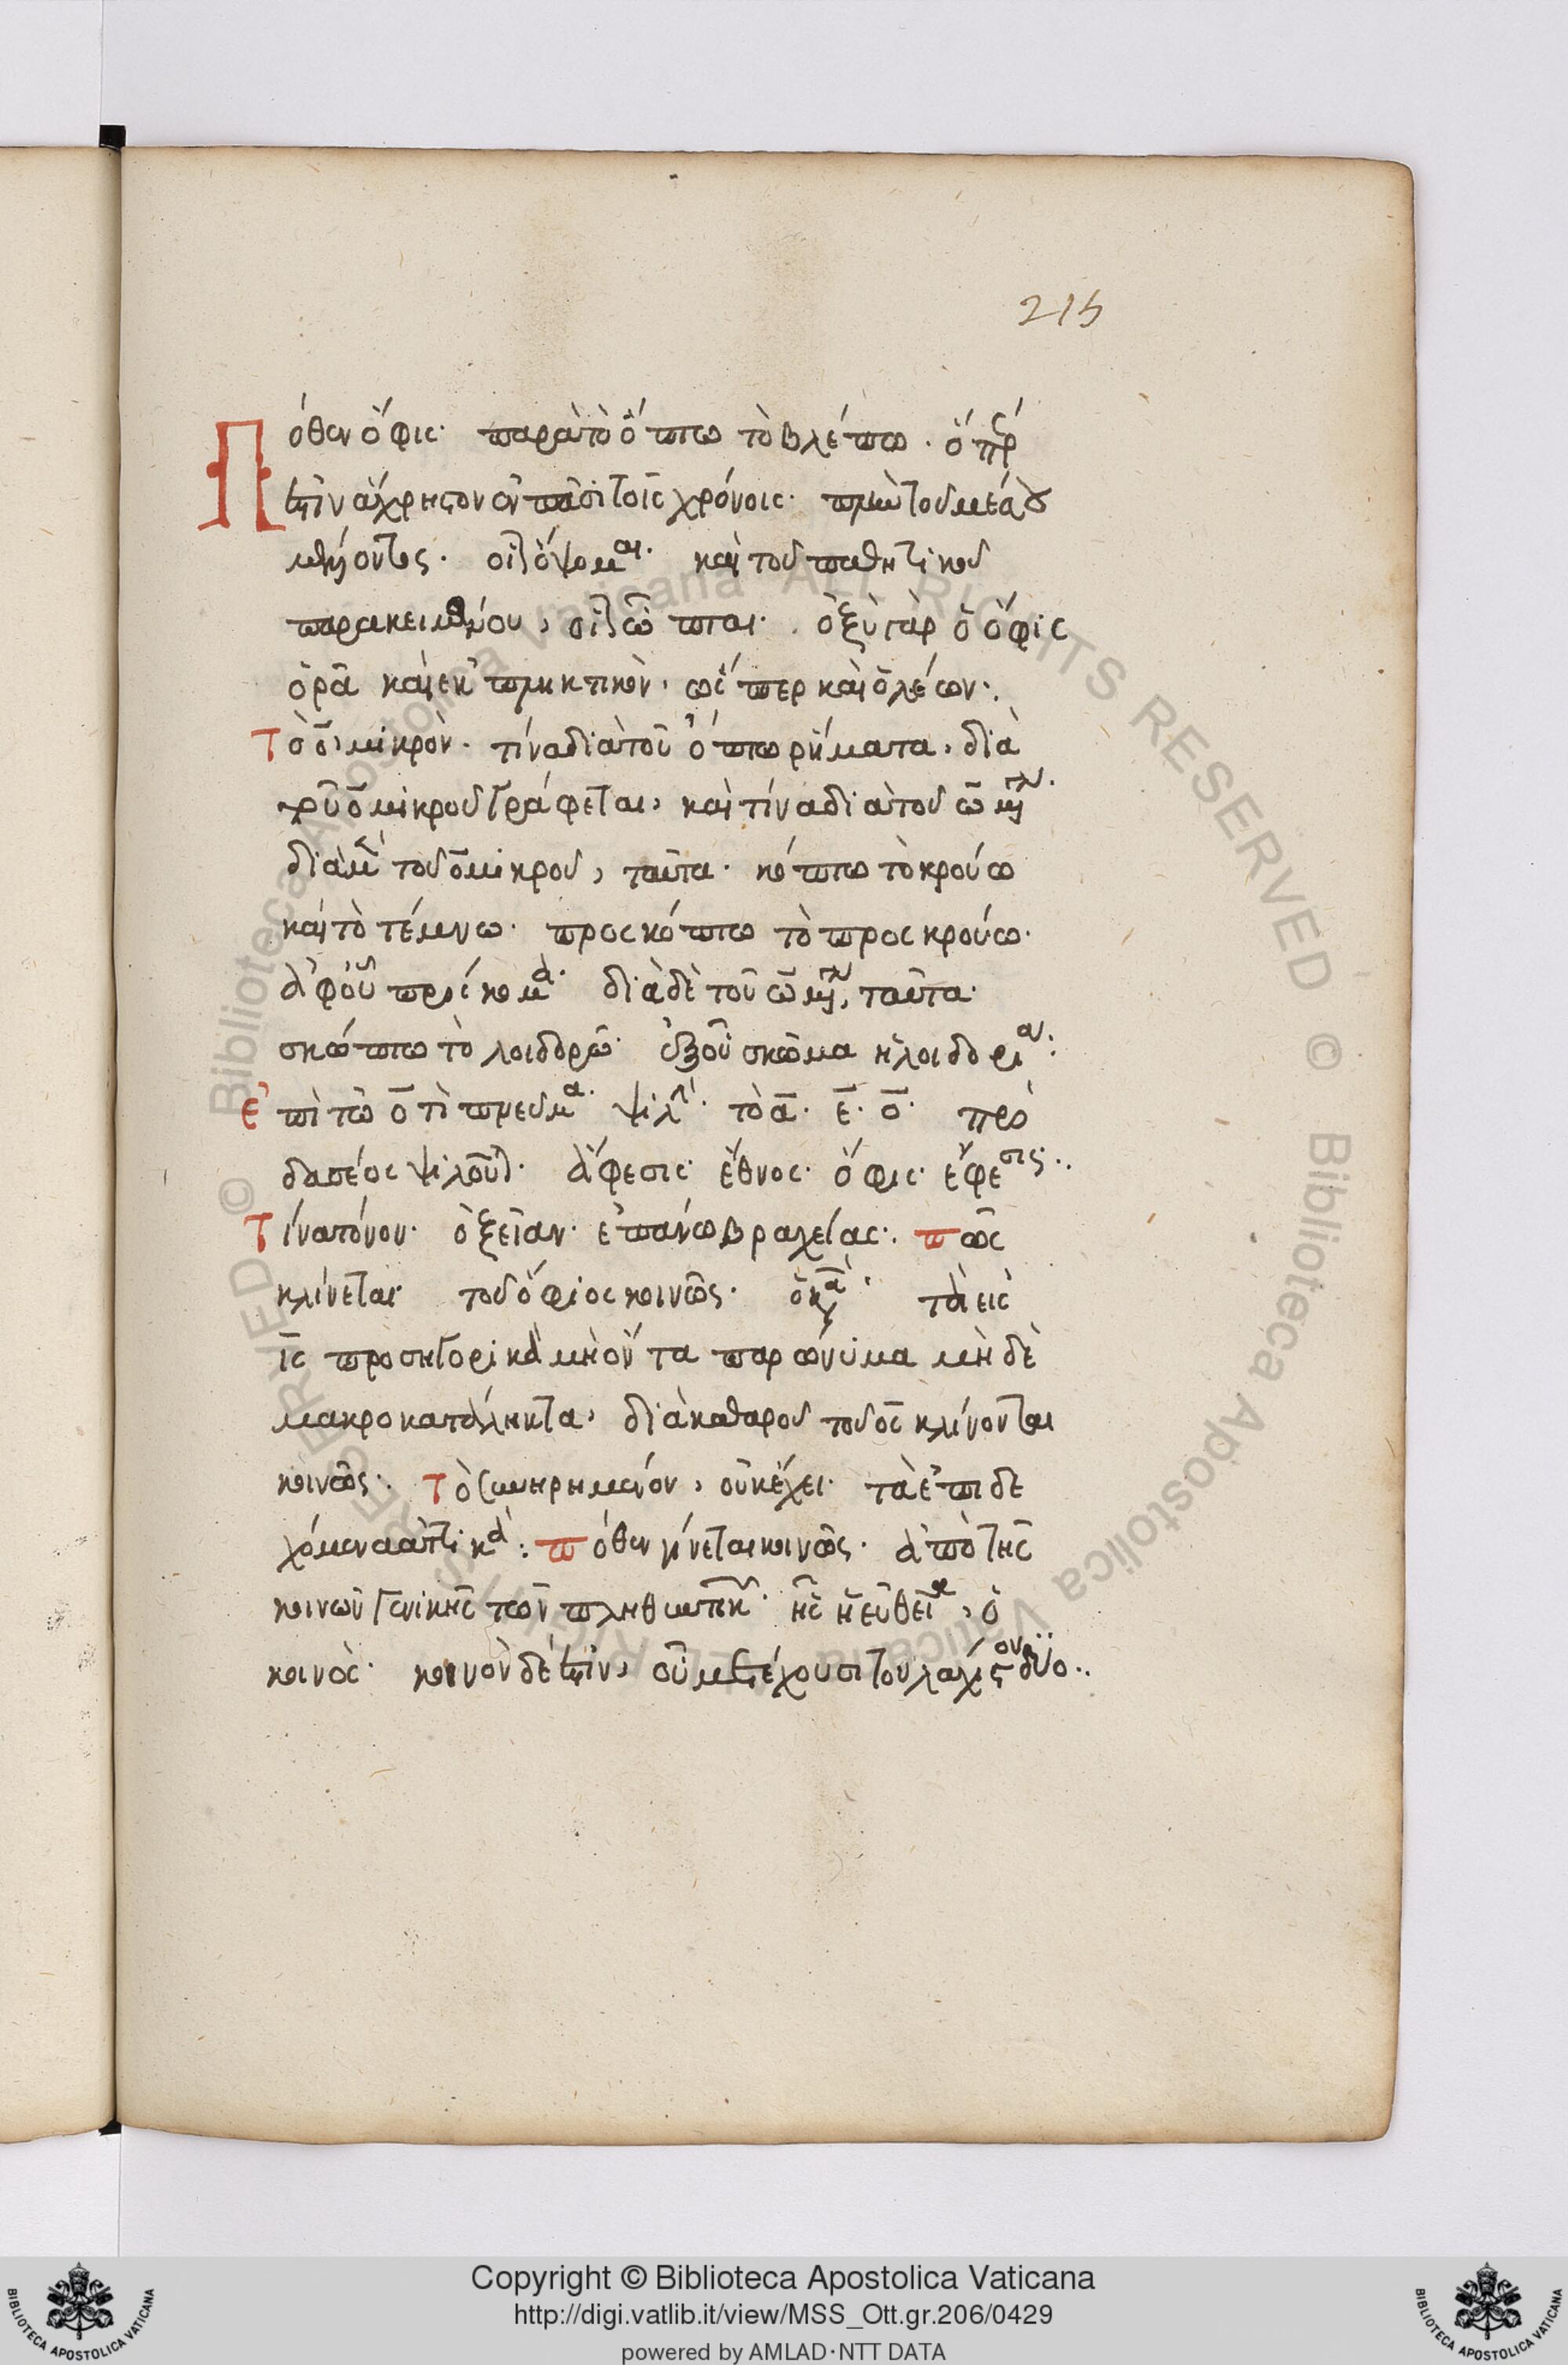 215
Πόθεν ὄφις· παρὰ τὸ ὄπτω τὸ βλέπω· ὅπερ
ἐστὶν ἄχρηστον ἐν πᾶσι τοῖς χρόνοις· πλὴν τοῦ μέσου
μέλλοντος· οἷον ὄψομαι· καὶ τοῦ παθητικοῦ
παρακειμένου, οἷον ὦπται· ὀξὺ γὰρ ὁ ὄφις
ὁρᾶ καὶ ἐκπληκτικὸν, ὥσπερ καὶ ὁ λέων:.
Τὸ ο̅ μικρὸν· τίνα διὰ τοῦ όπτω ῥήματα, διὰ
τοῦ ο̅ μικροῦ γράφεται, καὶ τίνα διὰ τοῦ ω̅ μεγάλου·
διὰ μὲν τοῦ ο̅ μικροῦ, ταῦτα· κόπτω τὸ κρούω
καὶ τὸ τέμνω· προσκόπτω τὸ προσκρούω·
ἀφ' οὗ πρόσκομμα· διὰ δὲ τοῦ ω̅ μεγάλου, ταῦτα·
σκώπτω τὸ λοιδορῶ· ἐξ οὗ σκῶμμα ἡ λοιδορία:
ἐπὶ τῶ ο̅ τί πνεῦμα· ψιλή· τὸ α̅· ε̅· ο̅· πρὸ
δασέος ψιλοῦται· ἄφεσις· ἔθνος· ὄφις· ἔφεσις:.
Τίνα τόνον· ὀξεῖαν· ἐπάνω βραχείας:. πῶς
κλίνεται τοῦ ὄφιος κοινῶς· ὁ κανών· τὰ εἰς
ις προσηγορικὰ μὴ ὄντα παρώνυμα μὴ δὲ
μακροκατάληκτα, διὰ καθαροῦ τοῦ ος κλίνονται
κοινῶς· τὸ συνηρημένον, οὐκ ἔχει· τὰ ἐπιδε
χόμενα ἀττικά: πόθεν γίνεται κοινῶς· ἀπὸ τῆς
κοινῶν γενικῆς τῶν πληθυντικῶν· ἧς ἡ εὐθεῖα, ὁ
κοινός· κοινὸν δέ ἐστιν, οὗ μετέχουσι τουλάχιστον δύο:.
Copyright © Biblioteca Apostolica Vaticana
http://digi.vatlib.it/view/MSS_Ott.gr.206/0429
powered by AMLAD·NTT DATA